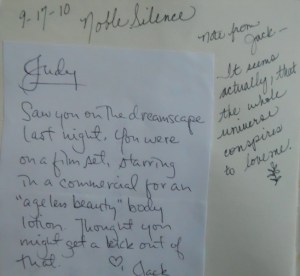 9-17-10
Noble Silence
Judy
Saw you on the dreamscape
last night. You were
on a film set, starring
in a commercial for an
"ageless beauty" body
lotion. Thought you
might get a kick out of
that. ♡, Jack
Note from
Jack –
It seems
actually, that
the whole
universe
conspires
to love me.